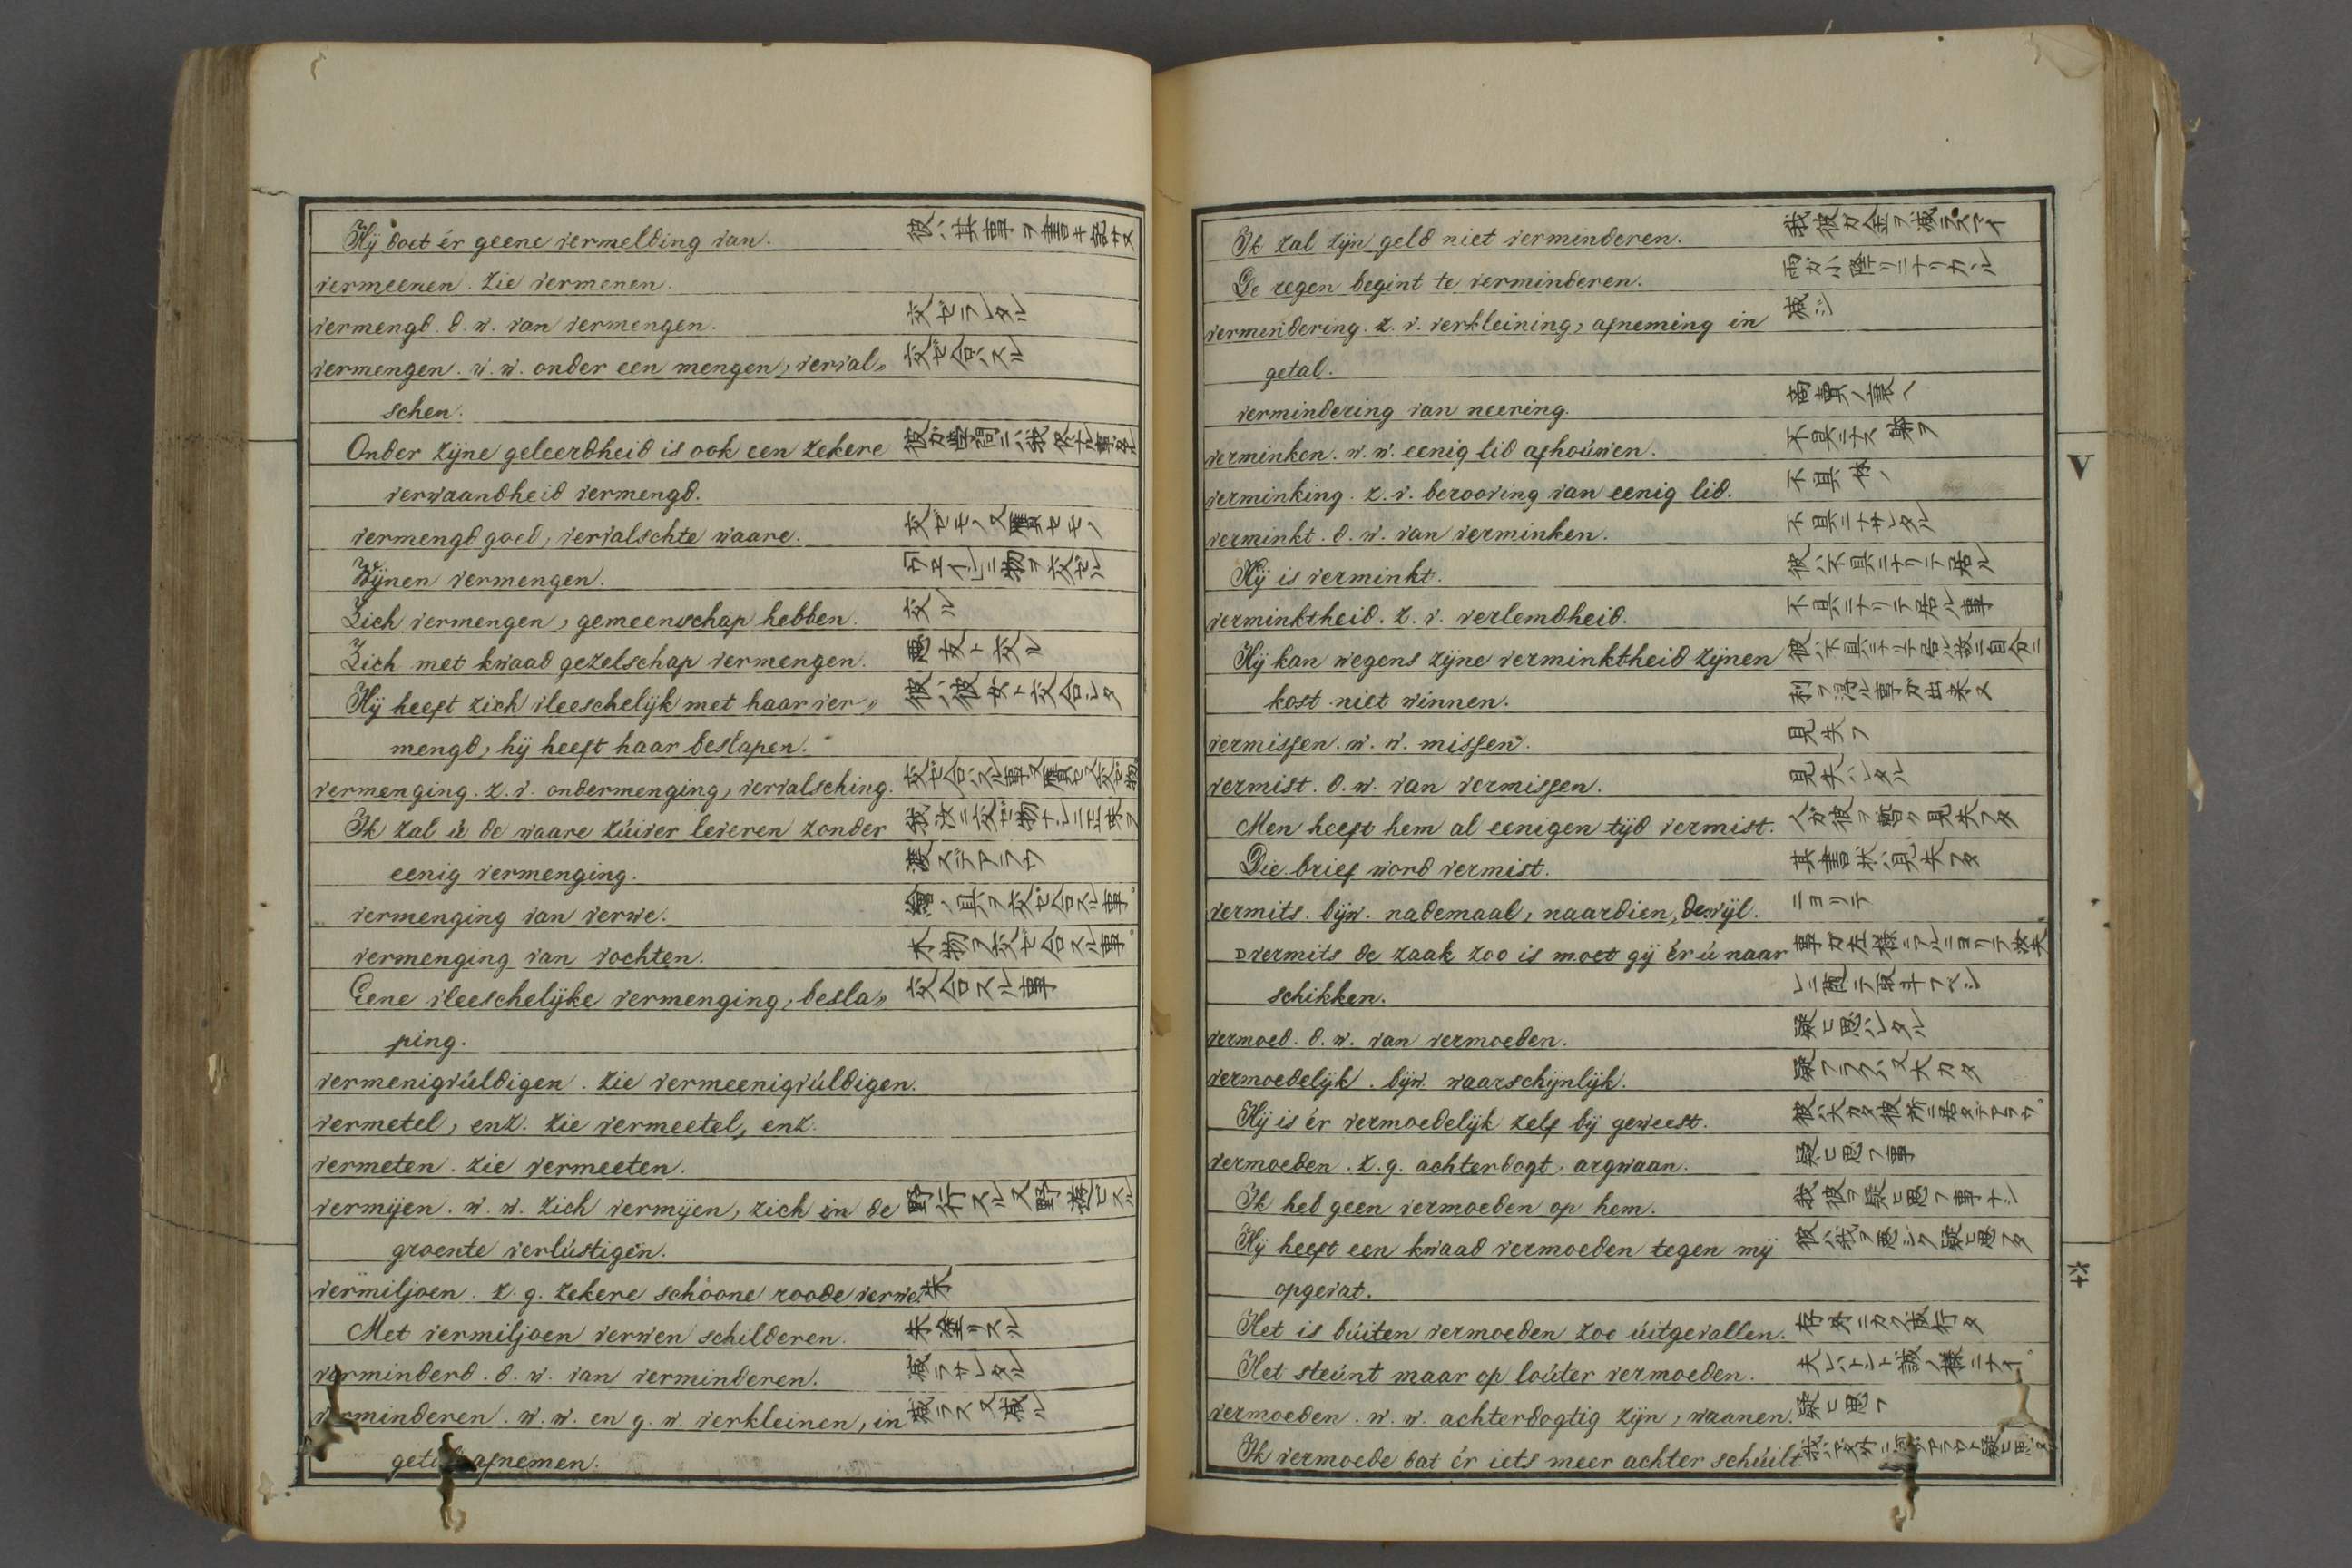 Hij doet ér geene vermelding van. 彼ハ其事ヲ書キ記サヌ
vermeenen. zie vermenen.
vermengd. d. w. van vermengen. 交ゼラレタル
vermengen. w. w. onder een mengen, verval„ 交ゼ合ハスル
schen.
Onder zijne geleerdheid is ook een zekere
verwaandheid vermengd.
vermengd goed, vervalschte waare. 交ゼモノ又贋セモノ
Wijnen vermengen. 「ウェイン」ニ物ヲ交ゼル
Zich vermengen, gemeenschap hebben. 交ル
Zich met kwaad gezelschap vermengen. 悪友ト交ル
Hij heeft zich vleeschelijk met haar ver„ 彼ハ彼女ト交合シタ
mengd, hij heeft haar beslapen.
vermenging. z. v. ondermenging, vervalsching. 交ゼ合ハスル事又贋セ交ゼ物
Ik zal ú de waare zúiver leveren zonder 我汝ニ交ゼ物ナシニ正味ヲ
eenig vermenging. 渡スデアラウ
vermenging van verwe. 繪ノ具ヲ交ゼ合スル事。
vermenging van vochten. 水物ヲ交ゼ合スル事。
Eene vleeschelijke vermenging, besla„ 交合スル事
ping.
vermenigvúldigen. zie vermeenigvúldigen.
vermetel, enz. zie vermeetel, enz.
vermeten. zie vermeeten.
vermijen. w. w. zich vermijen, zich in de 野行スル又野遊ビスル
groente verlústigen.
vermiljoen. z. g. zekere schoone roode verwe. 朱
Met vermiljoen verwen schilderen. 朱塗リスル
verminderd. d. w. van verminderen. 減ラサレタル
verminderen. w. w. en g. w. verkleinen, in 減ラス又減ル
getal afnemen.
Ik zal zijn geld niet verminderen. 我彼ガ金ヲ減ラスマイ
De regen begint te verminderen. 雨ガ小降リニナリカヽル
vermindering. z. v. verkleining, afneming in 減シ
getal.
vermindering van neering. 商賣ノ衰ヘ
verminken. w. w. eenig lid afhoúwen. 不具ニナス
verminking. z. v. berooving van eenig lid. 不具
verminkt. d. w. van verminken. 不具ニナサレタル
Hij is verminkt. 彼ハ不具ニナリテ居ル
verminktheid. z. v. verlemdheid. 不具ニナリテ居ル事
Hij kan wegens zijne verminktheid zijnen 彼ハ不具ニナリテ居ル故ニ自分ニ
kost niet winnen. 利ヲ得ル事ガ出来ヌ
vermissen. w. w. missen. 見失フ
vermist. d. w. van vermissen. 見失ハレタル
Men heeft hem al eenigen tijd vermist. 人ガ彼ヲ暫ク見失フタ
Die brief word vermist. 其書状ハ見失フタ
vermits. bijw. nademaal, naardien, dewijl. ニヨリテ
vermits de zaak zoo is moet gij ér ú naar 事ガ左様ニアルニヨリテ汝夫
schikken. レニ随テ取斗フベシ
vermoed. d. w. van vermoeden. 疑ヒ思ハレタル
vermoedelijk. bijw. waarschijnlijk. 疑フラクハ又大カタ
Hij is ér vermoedelijk zelf bij geweest. 彼ハ大カタ彼所ニ居タデアラウ。
vermoeden. z. g. achterdogt, argwaan. 疑ヒ思フ事
Ik heb geen vermoeden op hem. 我彼ヲ疑ヒ思フ事ナシ
Hij heeft een kwaad vermoeden tegen mij 彼ハ我ヲ悪シク疑ヒ思フタ
opgevat.
Het is búiten vermoeden zoo úitgevallen. 存外ニカク成行タ
Het steúnt maar op loúter vermoeden.
vermoeden. w. w. achterdogtig zijn, waanen. 疑ヒ思フ
Ik vermoede dat ér iets meer achter schúilt.
V